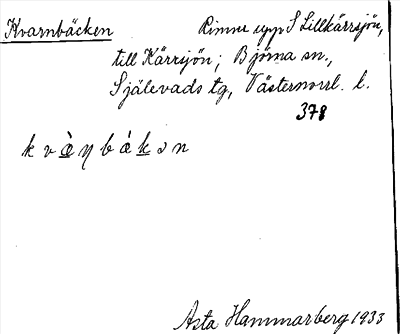 Kvarnbäcken Rinner upp S Lillkärrsjön,
till Kärrsjön; Björna sn.,
Själevads tg, Västernorrl. l.
378
k v à̲ ŋ b á k̲ ɔ n
Asta Hammarberg 1933